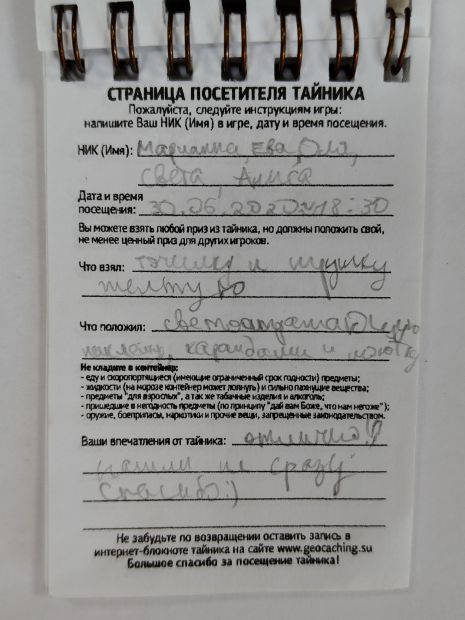 СТРАНИЦА ПОСЕТИТЕЛЯ ТАЙНИКА
Пожалуйста, следуйте инструкциям игры:
напишите Ваш НИК (Имя) в игре, дату и время посещения.
НИК (Имя): Марианна, Ева, Оля,
Света, Алиса
Дата и время
посещения: 30.06.2020г 18:30
Вы можете взять любой приз из тайника, но должны положить свой,
не менее ценный приз для других игроков.
Что взял: точилку и
желтую
Что положил:
наклейку, карандаши и
Не кладите в контейнер:
- еду и скоропортящиеся (имеющие ограниченный срок годности) предметы;
- жидкости (на морозе контейнер может лопнуть) и сильно пахнущие вещества;
- предметы "для взрослых", а так же табачные изделия и алкоголь;
- пришедшие в негодность предметы (по принципу "дай вам Боже, что нам негоже");
- оружие, боеприпасы, наркотики и прочие вещи, запрещенные законодательством.
Ваши впечатления от тайника: отлично!
нашли не сразу
Спасибо:)
Не забудьте по возвращении оставить запись в
интернет-блокноте тайника на сайте www.geocaching.su
Большое спасибо за посещение тайника!